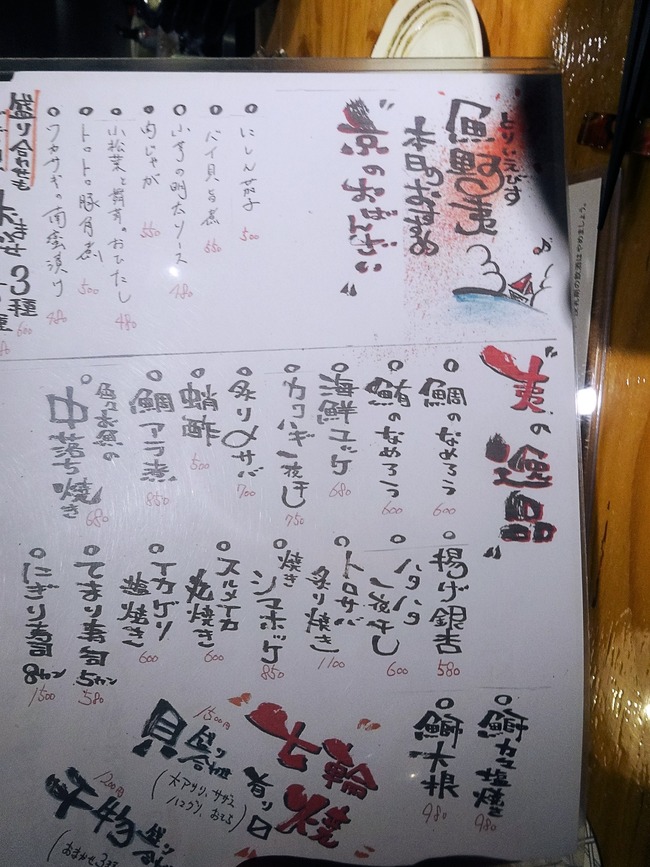 とりいえびす
本日のおすすめ
"京のおばんざい"
にしん茄子 500
バイ貝旨煮 550
小芋の明太ソース 480
肉じゃが 550
小松菜と舞茸のおひたし 480
トロトロ豚角煮 500
ワカサギの南蛮漬け 480
盛り合わせも
3種 600
"夷の逸品"
鯛のなめろう 600
鮪のなめろう 600
海鮮ユッケ 680
カワハギ一夜干し 750
炙り〆サバ 700
蛸酢 500
鯛アラ煮 850
中落ち焼き 680
揚げ銀杏 580
ハタハタ一夜干し 600
トロサバ炙り焼き 1100
焼きシマホッケ 850
スルメイカ丸焼き 600
イカゲソ塩焼き 600
てまり寿司 5カン 580
にぎり寿司 8カン 1500
鰤カマ塩焼き 980
鰤大根 980
七輪焼
有り〼
貝盛り合わせ 1500円
(大アサリ、サザエ
ハマグリ、
干物盛り合わせ 1200円
(おまかせ3
飲酒はやめましょう。